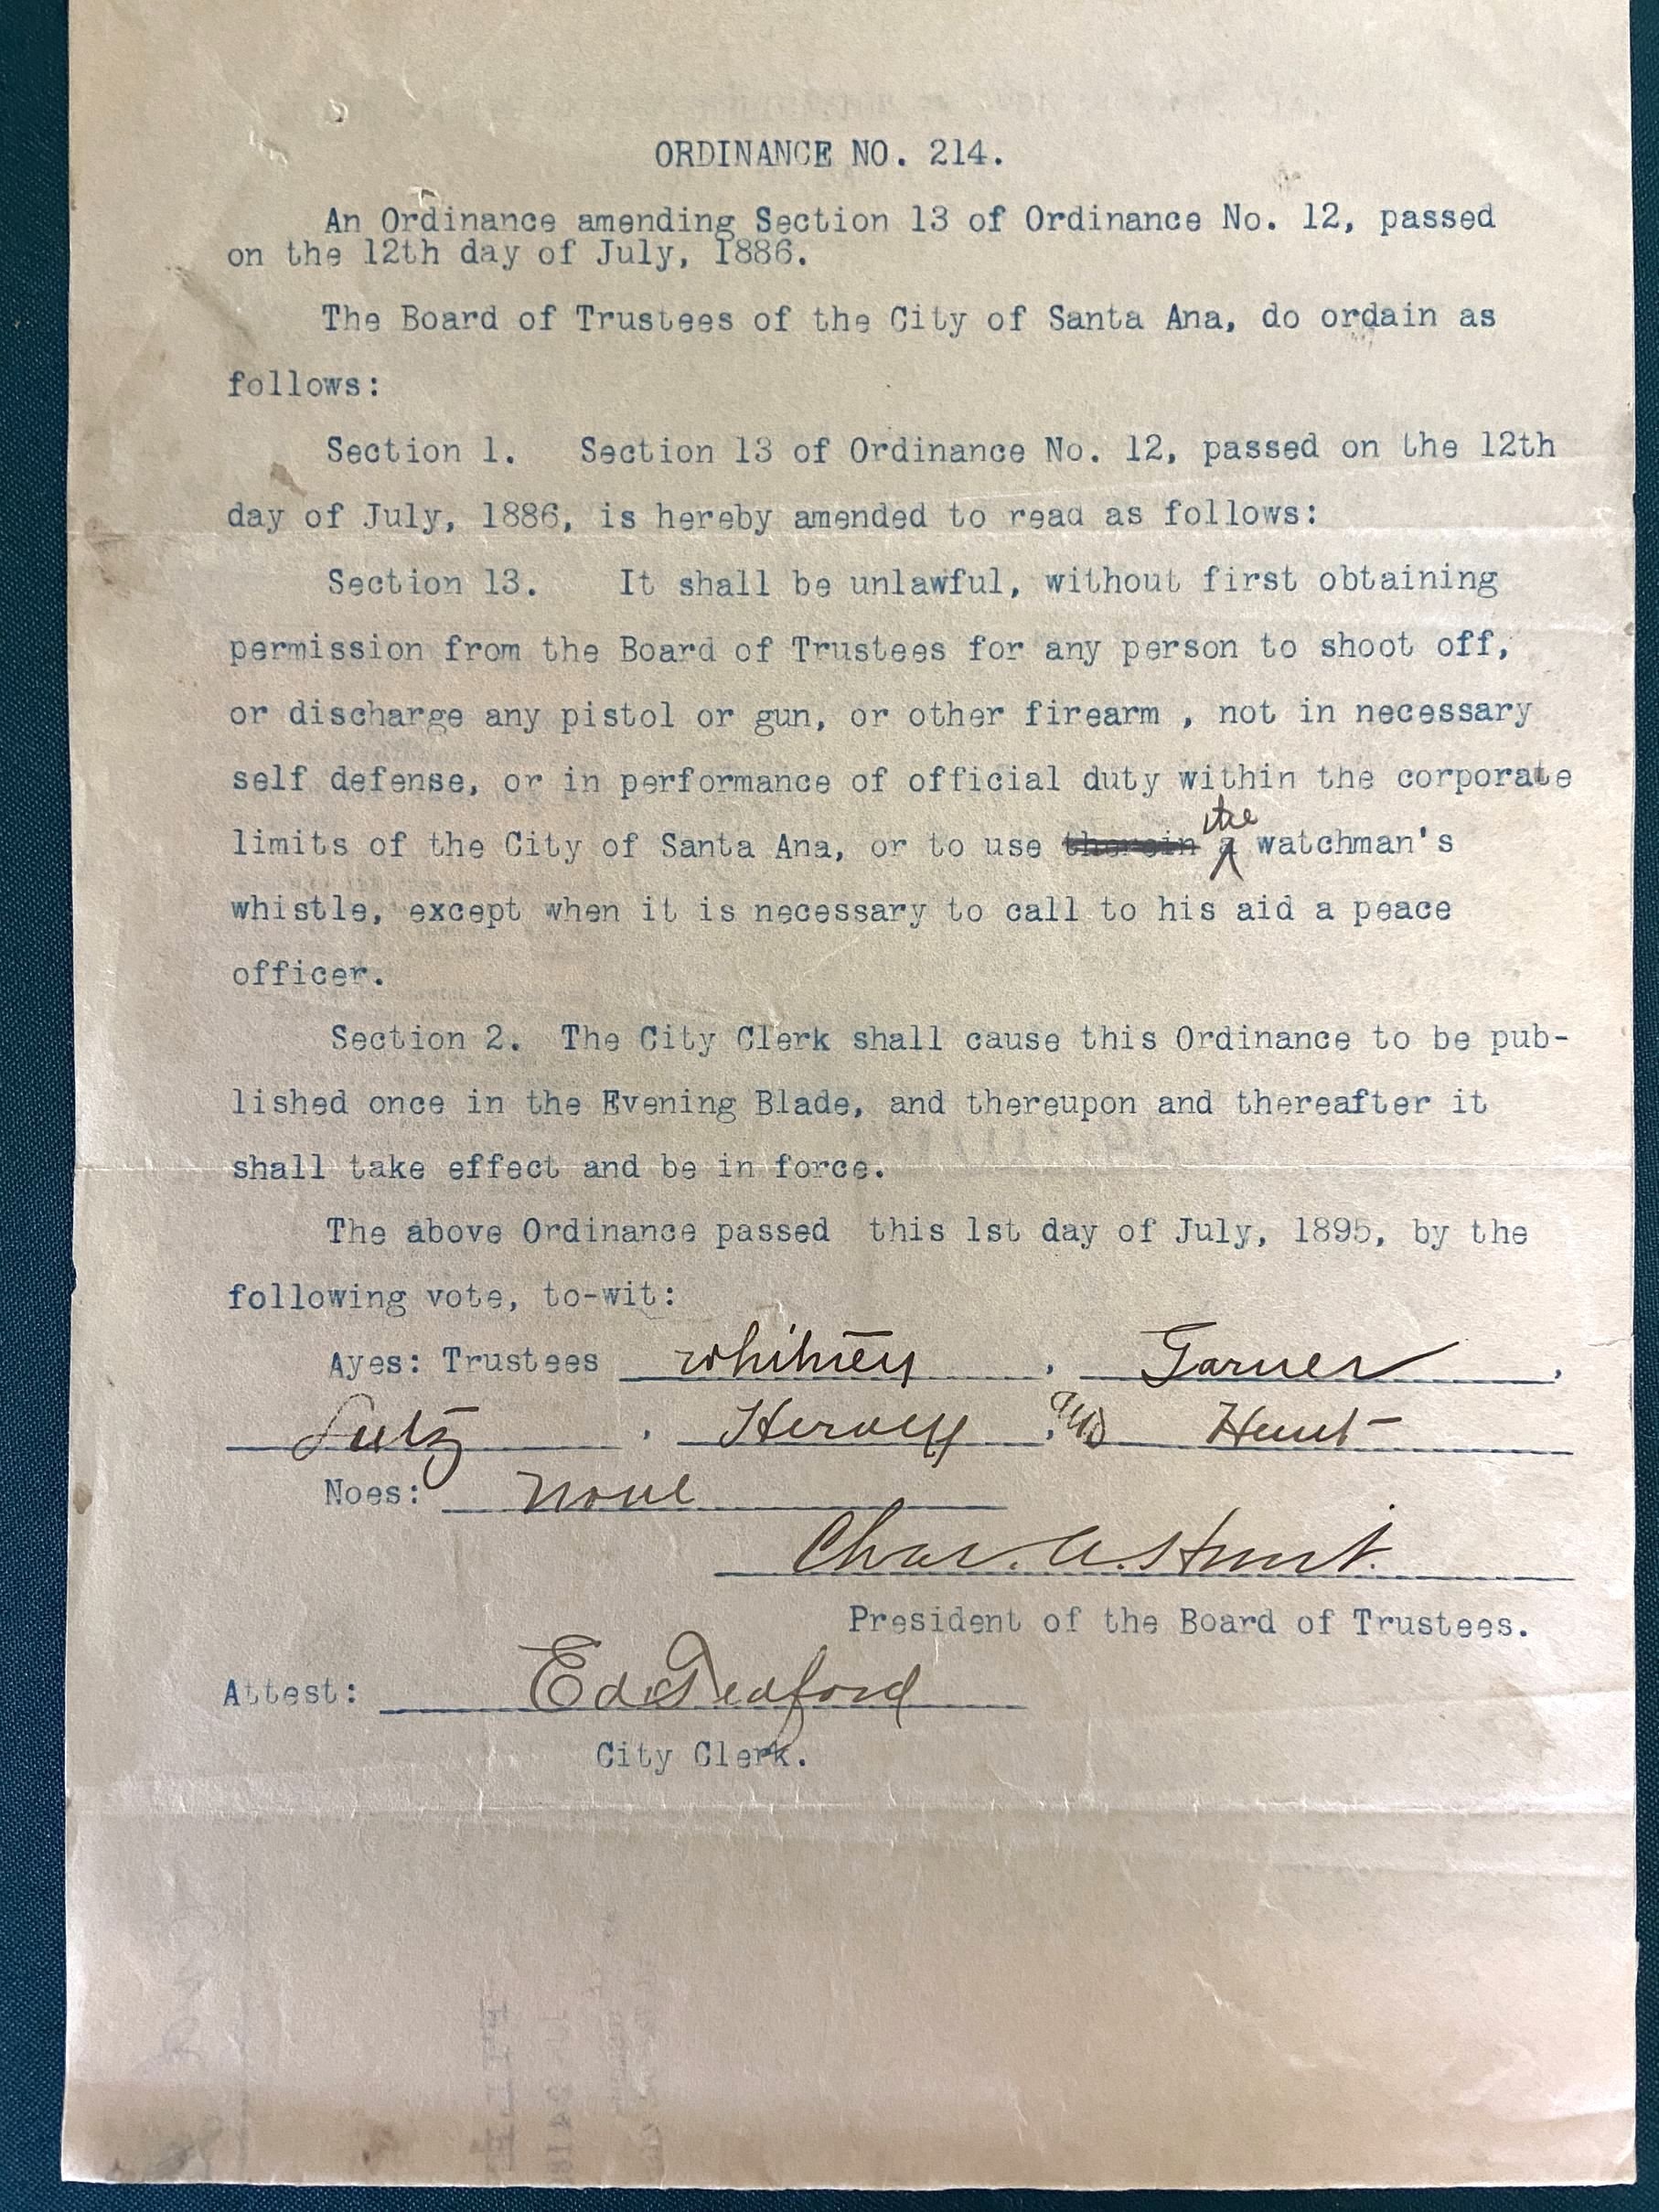 ORDINANCE NO. 214.
An Ordinance amending Section 13 of Ordinance No. 12, passed
on the 12th day of July, 1886.
The Board of Trustees of the City of Santa Ana, do ordain as
follows:
Section 1. Section 13 of Ordinance No. 12, passed on the 12th
day of July, 1886, is hereby amended to read as follows:
Section 13. It shall be unlawful, without first obtaining
permission from the Board of Trustees for any person to shoot off,
or discharge any pistol or gun, or other firearm , not in necessary
self defense, or in performance of official duty within the corporate
the
limits of the City of Santa Ana, or to use therein a watchman's
whistle, except when it is necessary to call to his aid a peace
officer.
Section 2. The City Clerk shall cause this Ordinance to be pub-
lished once in the Evening Blade, and thereupon and thereafter it
shall take effect and be in force.
The above Ordinance passed this 1st day of July, 1895, by the
following vote, to-wit:
Ayes: Trustees Whitney, Garner,
Lutz, Hervey, and Hunt
Noes: None
Chas. A. Hunt.
President of the Board of Trustees.
Attest: Ed Tedford
City Clerk.